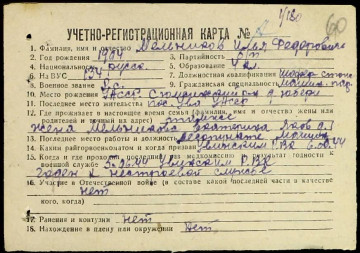 1/180
60
УЧЕТНО-РЕГИСТРАЦИОННАЯ КАРТА №
1. Фамилия, имя и отчество Мельников Илья Федорович
2. Год рождения 1904 3. Партийность б/п
4. Национальность русс. 5. Образование 4 кл.
6. На ВУС 134 7. Должностная квалификация
8. Военное звание 9. Гражданская специальность
10. Место рождения УАССР
11. Последнее место жительства пос. Ува УАССР
12. Где проживает в настоящее время семья (фамилия, имя и отчество жены или
родителей и точный их адрес)
жена Мельникова
13. Последнее место работы и должность
14. Каким райгорвоенкоматом и когда призван Увинским РВК 6.06.44
15. Когда и где проходил последнее медосвидетельствование и результат годности к
военной службе 5.06.44 Увинским РВК
годен к нестроевой службе
16. Участие в Отечественной войне (в составе какой последней части в качестве
кого, когда) нет
17. Ранения и контузии нет
18. Нахождение в плену или окружении нет